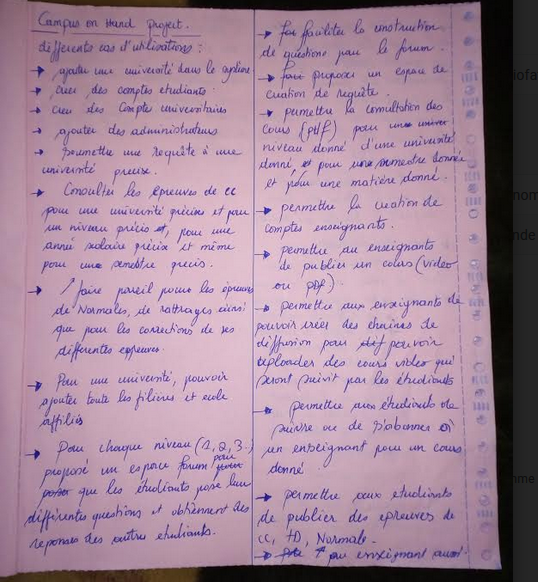 Campus on Hand project.
différents cas d'utilisations :
→ ajouter une université dans le système
→ creer des comptes etudiants.
→ creer des Compte universitaires
→ ajouter des administrateurs
→ Soumettre une requête à une
université précise.
→ Consulter les épreuves de CC
pour une université précise et pour
un niveau précis et, pour une
anné scolaire précise et même
pour une semestre precis.
→ faire pareil pour les épreuves
de Normales, de rattrages ainsi
que pour les corrections de ses
differentes epreuves.
→ Pour une université, pouvoir
ajouter toute les filières et ecole
affiliés
→ Pour chaque niveau (1, 2, 3..)
proposé un espace forum pour
que les étudiants pose leur
différentes questions et obtiennent des
reponses des autres etudiants.
→ faciliter la construction
de questions pour le forum.
→ proposer un espace de
creation de requête.
→ permettre la consultation des
Cours (pdf) pour
niveau donné d'une université
donné, et pour une semestre donnée
et pour une matière donné.
→ permettre la creation de
comptes enseignants.
→ permettre au enseignants
de publier un cours (video
ou pdf)
→ permettre aux enseignants de
pouvoir créer des chaines de
diffusion pour pouvoir
uploader des cours video qui
seront suivit par les étudiants
→ permettre aux étudiants de
suivre ou de s'abonner à
un enseignant pour un cours
donné.
→ permettre aux etudiants
de publier des epreuves de
CC, TD, Normale.
→ pour enseignant aussi.